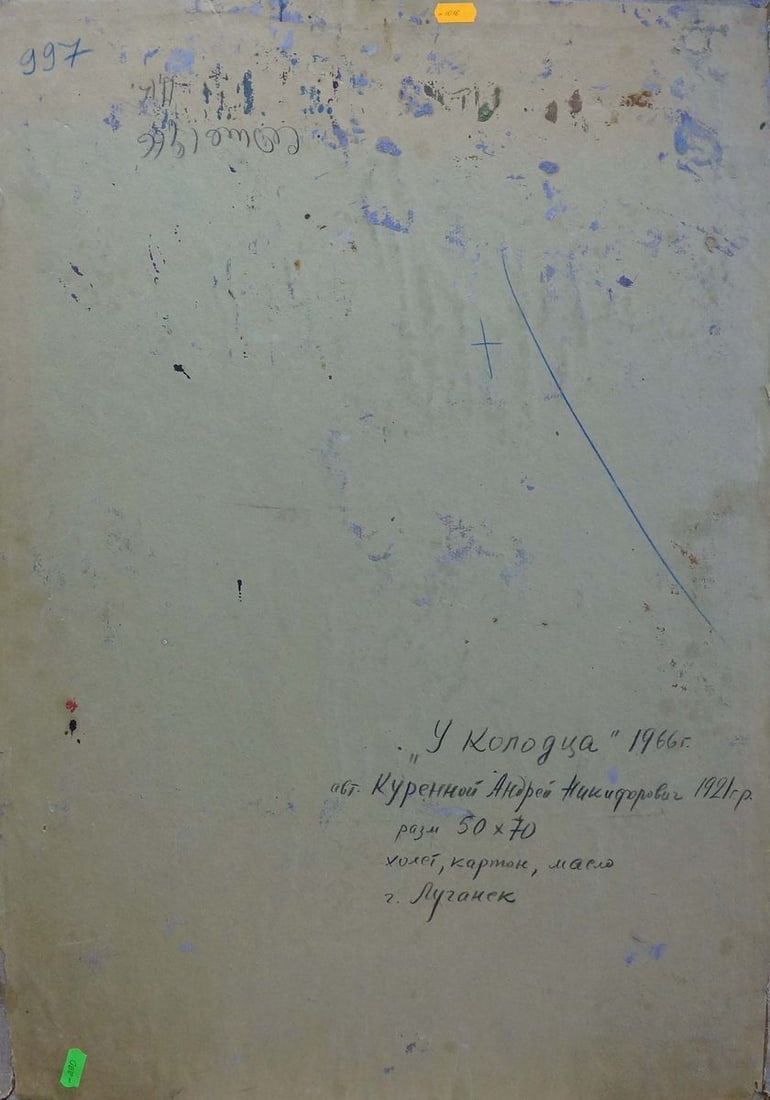 997
„У Колодца" 1966г.
авт. Куренной Андрей Никифорович 1921г.р.
разм 50 х 70
холст, картон, масло
г. Луганск